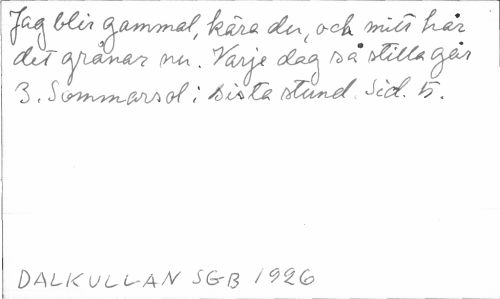 Jag blir gammal, kära du, och mitt hår
det grånar nu. Varje dag så stilla går
3. Sommarsol i sista stund. Sid. 5.
DALKULLAN SGB 1926